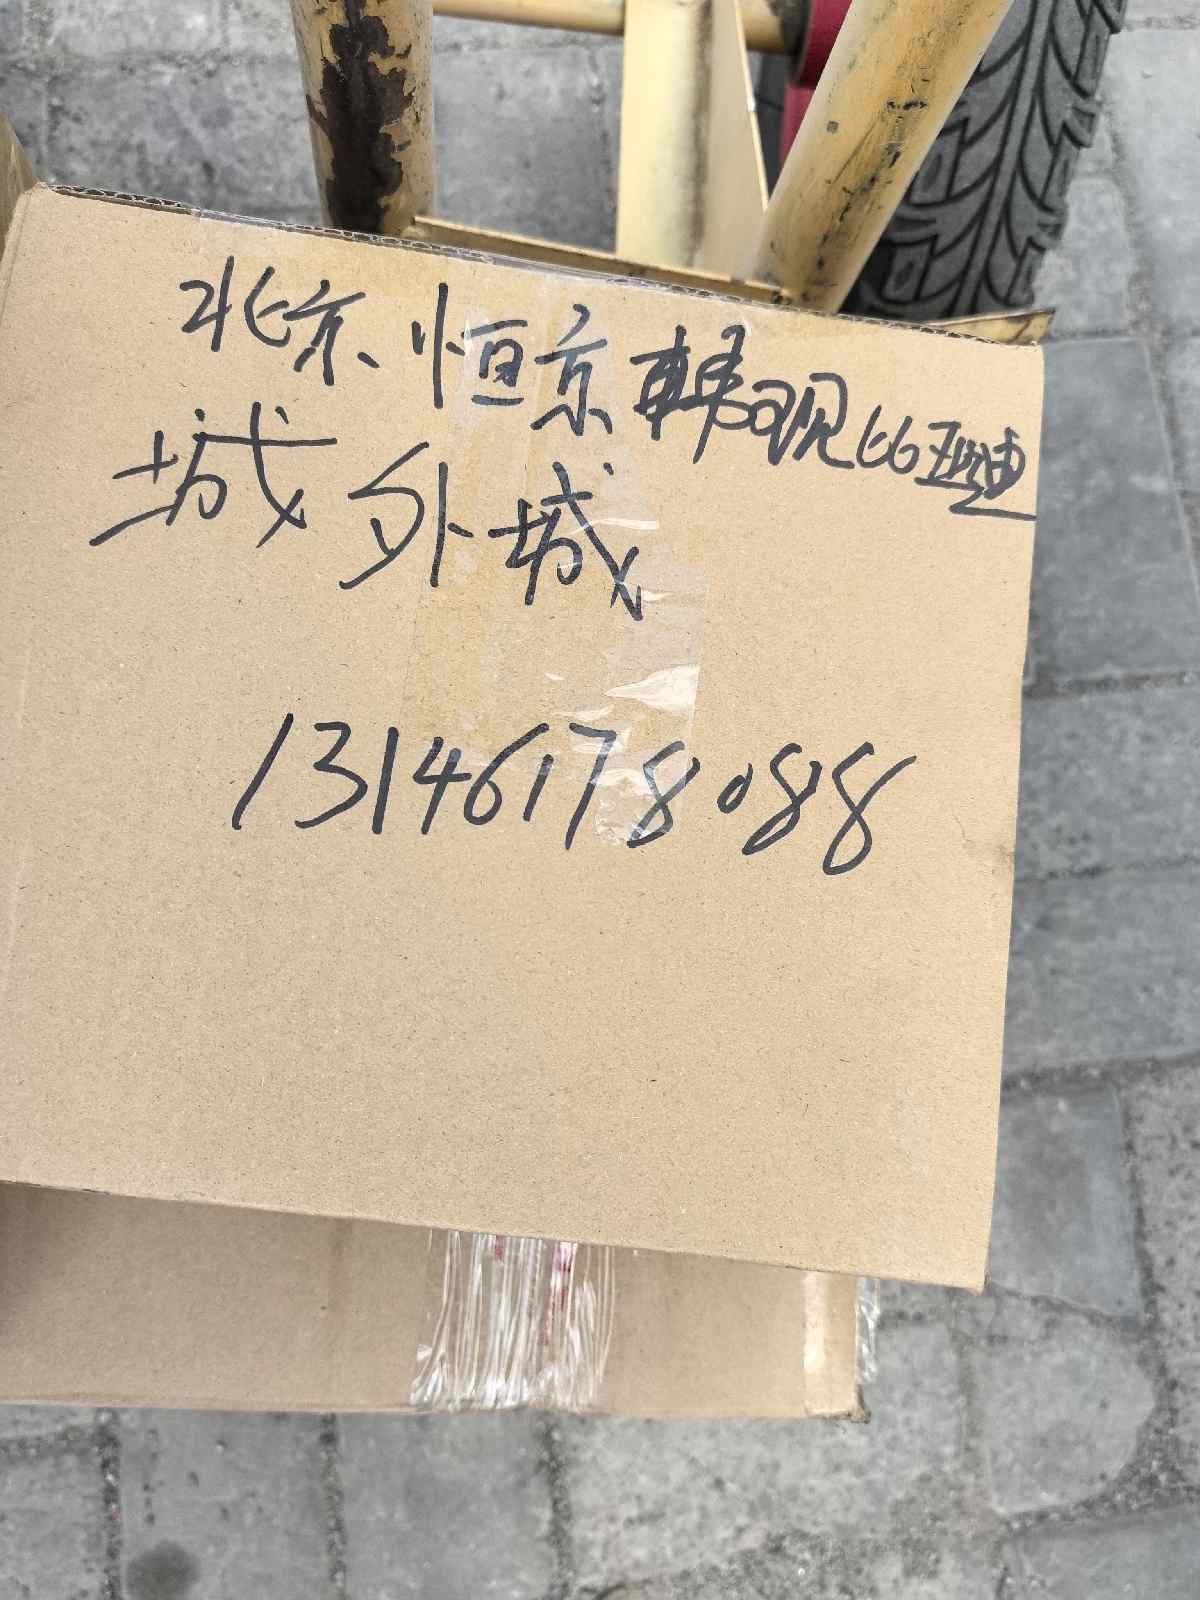 北京、恒京韩观比亚迪
城外城
13146178088